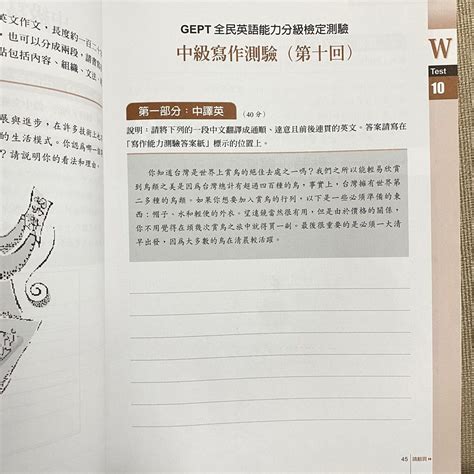 英文作文，長度約一百二十
也可以分成兩段，請書寫
點包括內容、組織、文法、
展與進步，在許多技術上
的生活模式。你認為哪一
？請說明你的看法和理由。
GEPT 全民英語能力分級檢定測驗
中級寫作測驗（第十回）
W
Test
10
第一部分：中譯英 （40 分）
說明：請將下列的一段中文翻譯成通順、達意且前後連貫的英文。答案請寫在
「寫作能力測驗答案紙」標示的位置上。
你知道台灣是世界上賞鳥的絕佳去處之一嗎？我們之所以能輕易欣賞
到鳥類之美是因為台灣總計有超過四百種的鳥，事實上，台灣擁有世界第
二多種的鳥類。如果你想要加入賞鳥的行列，以下是一些必須準備的東
西：帽子、水和輕便的外衣。望遠鏡當然很有用，但是由於價格的關係，
你不用覺得在頭幾次賞鳥之旅中就得買一副。最後很重要的是必須一大清
早出發，因為大多數的鳥在清晨較活躍。
45
請翻頁